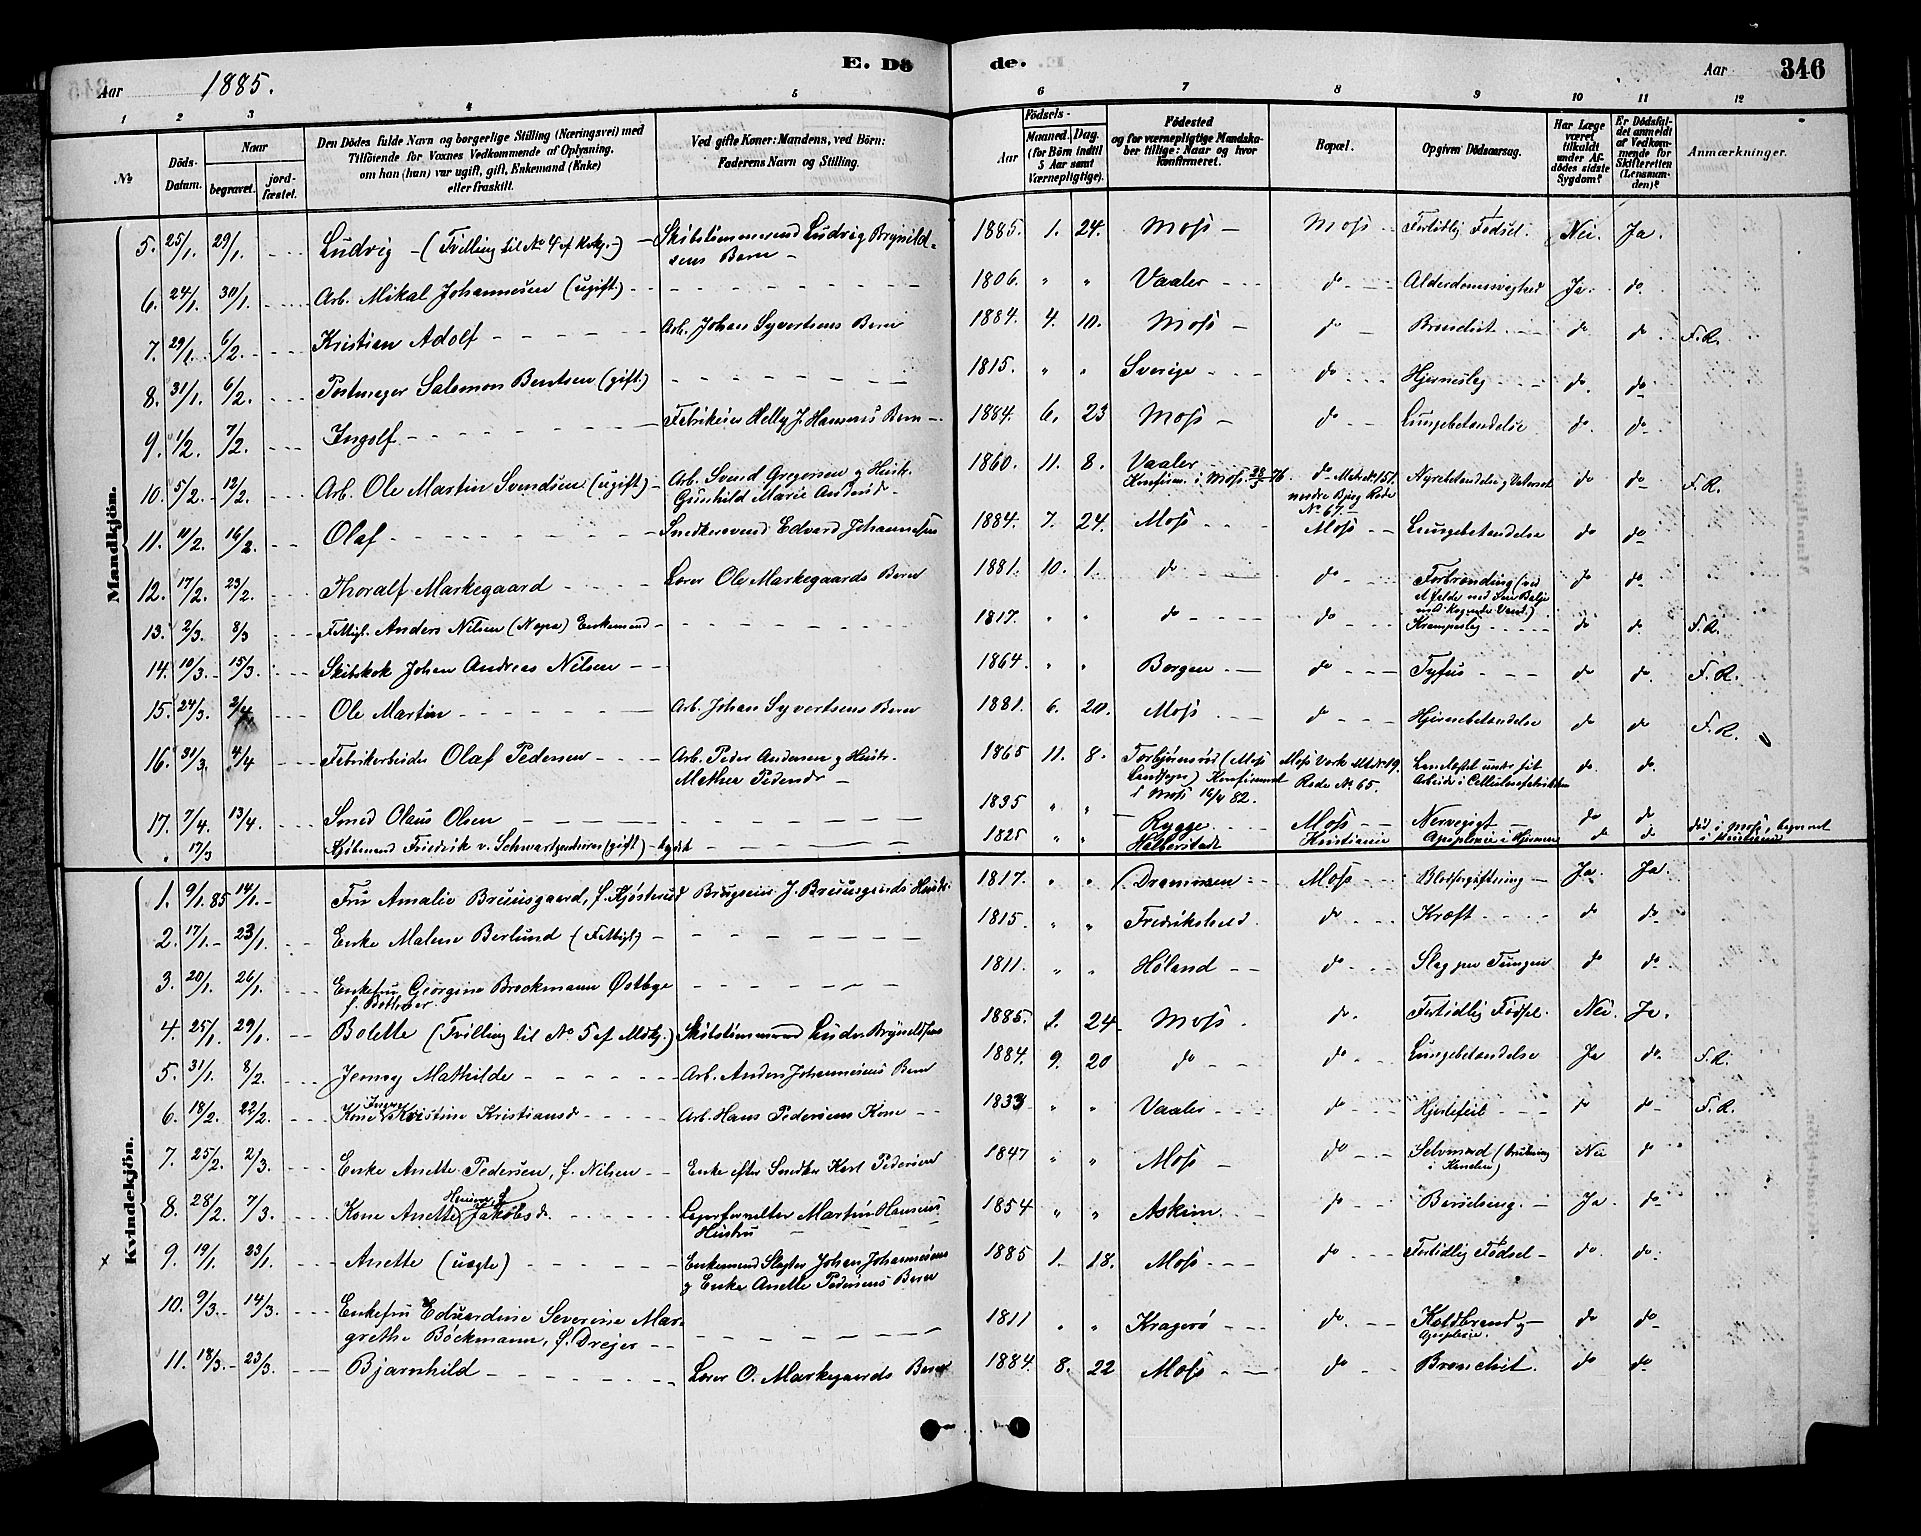 Aar 1885.
E. Dö
de.
Aar
346
1 2 3 4 5 6 7 8 9 10 11 12
№
Döds-Datum.
Naar
begravet.
jord-fæstet.
Den Dödes fulde Navn og borgerlige Stilling (Næringsvei) med
Tilföiende for Voxnes Vedkommende af Oplysning,
om han (hun) var ugift, gift, Enkemand (Enke)
eller fraskilt.
Ved gifte Koner: Mandens, ved Börn:
Faderens Navn og Stilling.
Födsels-
Aar
Maaned. Dag.
(for Börn indtil
5 Aar samt
Værnepligtige).
Födested
og for værnepligtige Mandska-
ber tillige: Naar og hvor
konfirmeret.
Bopæl.
Opgiven Dödsaarsag.
Har Læge
været
tilkaldt
under Af-
dödes sidste
Sygdom?
Er Dödsfal-
det anmeldt
af Vedkom-
mende for
Skifteretten
(Lensman-
den)?
Anmærkninger.
Mandkjön.
5. 25/1. 29/1. Ludvig - (Tvilling til No 4 af Kvkj.) Skibstömmermand Ludvig Brynild- 1885. 1. 24. Moss Moss Fortidlig Födsel. Nei. Ja.
sens Barn
6. 24/1. 30/1. Arb. Mikal Johannesen (ugift.) 1806. " " Vaaler do Alderdomssvaghed Ja. do
7. 29/1. 6/2. Kristian Adolf Arb. Johan Syvertsens Barn 1884. 4. 10. Moss do Bronchit do do F.R.
8. 31/1. 6/2. Salomon Berntsen (gift.) 1815. " " Sverige do Hjerneslag do do
9. 1/2. 7/2. Ingolf Fabrikeier Helly J. Hansens Barn 1884. 6. 23 Moss do Lungebetændelse do do
10. 5/2. 12/2. Arb. Ole Martin Svendsen (ugift) Arb. Svend Gregersen g Hustr. 1860. 11. 8. Vaaler do do do F.R.
Gunhild Marie Andersd. Konfirm. i Moss
No 67.
11. 11/2. 16/2. Olaf Snedkersvend Edvard Johannesen 1884. 7. 24. Moss Moss Lungebetændelse do do
12. 17/2. 23/2. Thoralf Markegaard Lærer Ole Markegaards Barn 1881. 10. 1. do do Forbrænding do do
13. 2/3. 8/3 Anders Nilsen Enkemand 1817. " " do do Krampeslag do do F.R.
14. 10/3. 15/3. Skibskok Johan Andreas Nilsen 1864. " " Borgen do Tyfus do do F.R.
15. 24/3. 2/4 Ole Martin Arb. Johan Syvertsens Barn 1881. 6. 20. Moss do Hjernebetændelse do do F.R.
16. 31/3. 4/4 Fabrikarbeider Olaf Pedersen Arb. Peder Andersen g Hustr. 1865 11. 8. (Moss Moss Værk do do
Mathea Pedersd. Landsogn) Konfirmeret Rode No 65. Arbeide i Cellulosefabrikken
i Moss
17. 7/4. 13/4. Smed Olaus Olsen 1835 " " Rygge Moss do do
17/3 Kjöbmand Friedrik v. (gift) 1825 " " Halberstadt Kristiania do do död i Moss, begravet
i Kristiania
Kvindekjön.
1. 9/1. 85 14/1. Fru Amalie Bruusgaard, f. Kjøsterud J. Bruusgaards Hustr. 1817. " " Drammen Moss Blodforgiftning Ja. Ja.
2. 17/1. 23/1. Enke Malene Berlund 1815. " " Fredrikshald do Kræft do do
3. 20/1. 26/1. Enkefru Georgine Brockmann Østbye 1811. " " Høland do Slag do do
4. 25/1. 29/1. Bolette (Tvilling til No 5 af Mdkj.) Skibstömmermand Ludv. Brynildsens 1885. 1. 24 Moss do. Fortidlig Födsel. Nei. Ja.
5. 31/1. 8/2. Jenny Mathilde Arb. Anders Johannesens Barn 1884. 9. 20 do do Lungebetændelse Ja do F.R.
6. 18/2. 22/2. Kone Kristine Kristiansd. Arb. Hans Pedersens Kone 1833 " " Vaaler do Hjertefeil do do F.R.
7. 25/2. 2/3. Enke Anette Pedersen, f. Nilsen Enke efter Snedker Karl Pedersen 1847 " " Moss do Selvmord Nei do
8. 28/2. 7/3. Kone Anette Jakobsd. Martin Hansens 1854 " " Askim do Barselseng. Ja. do
Hustru
9. 19/1. 23/1. Anette (uægte) Enkemand Slagter Johan Johannesens 1885 1. 18. Moss do Fortidlig Födsel do. do.
g Enke Anette Pedersens Barn
10. 9/3. 14/3. Enkefru Eduardine Severine Mar- 1811 " " Kragerø do. Koldbrand g do do
grethe Böckmann, f. Drejer Apoplexie.
11. 18/3. 23/3. Bjarnhild Lærer O. Markegaards Barn 1884. 8. 22 Moss do Bronchit. do do